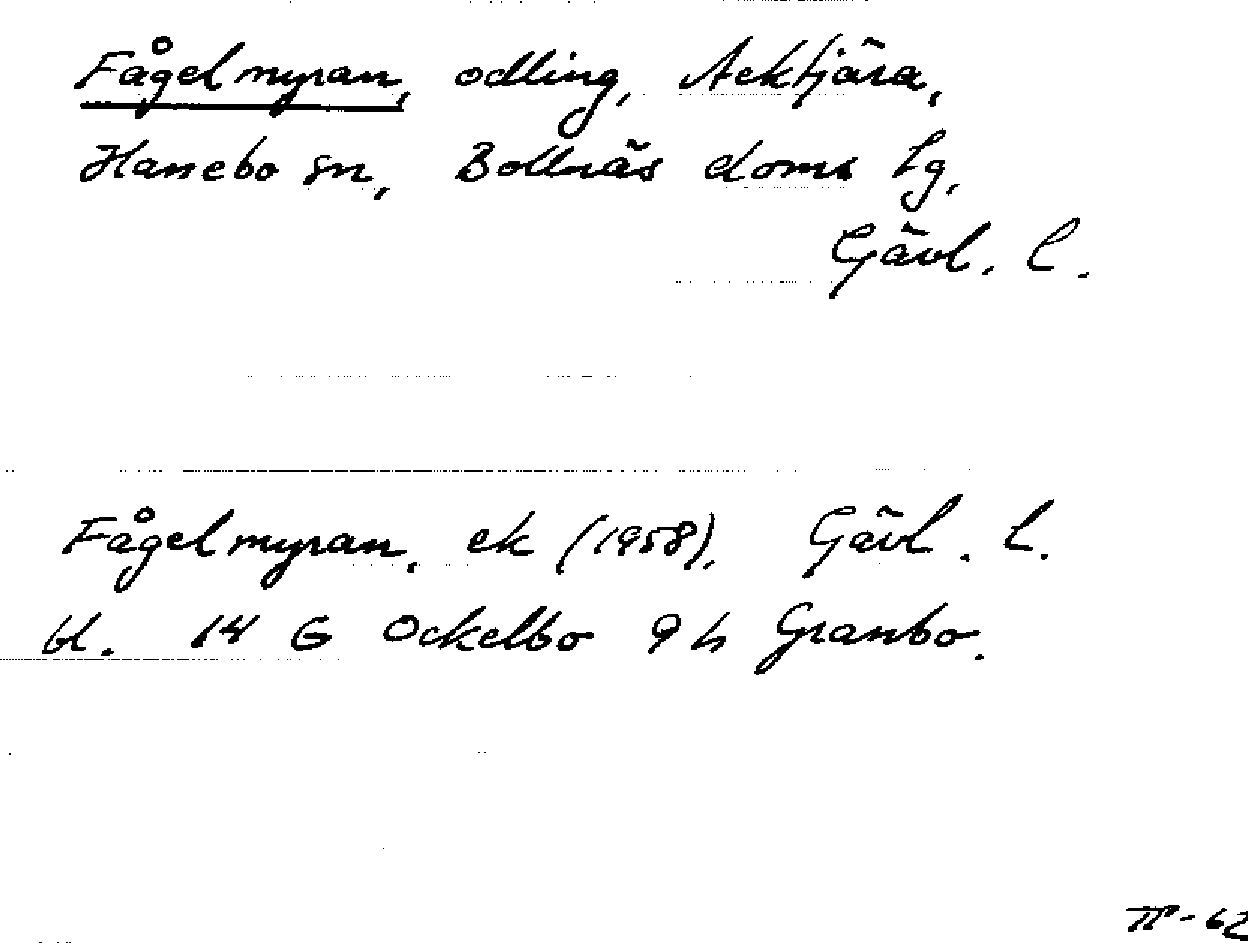 Fågelmyran, odling, Acktjära,
Hanebo sn, Bollnäs doms lg,
Gävl. l.
Fågelmyran, ek (1958), Gävl. l.
bl. 14 G Ockelbo 9 h Granbo.
TP-62